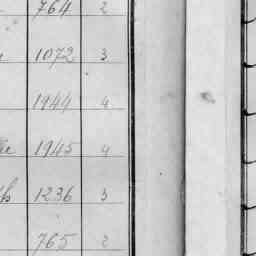 764 2
1072 3
1944 4
1945 4
1236 3
765 2